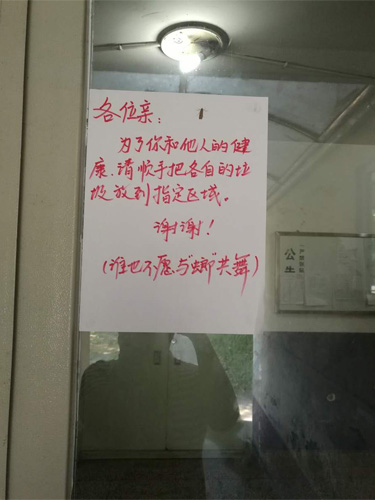 各位亲：
为了你和他人的健
康、请顺手把各自的垃
圾放到指定区域。
谢谢！
（谁也不愿与“螂”共舞）
公